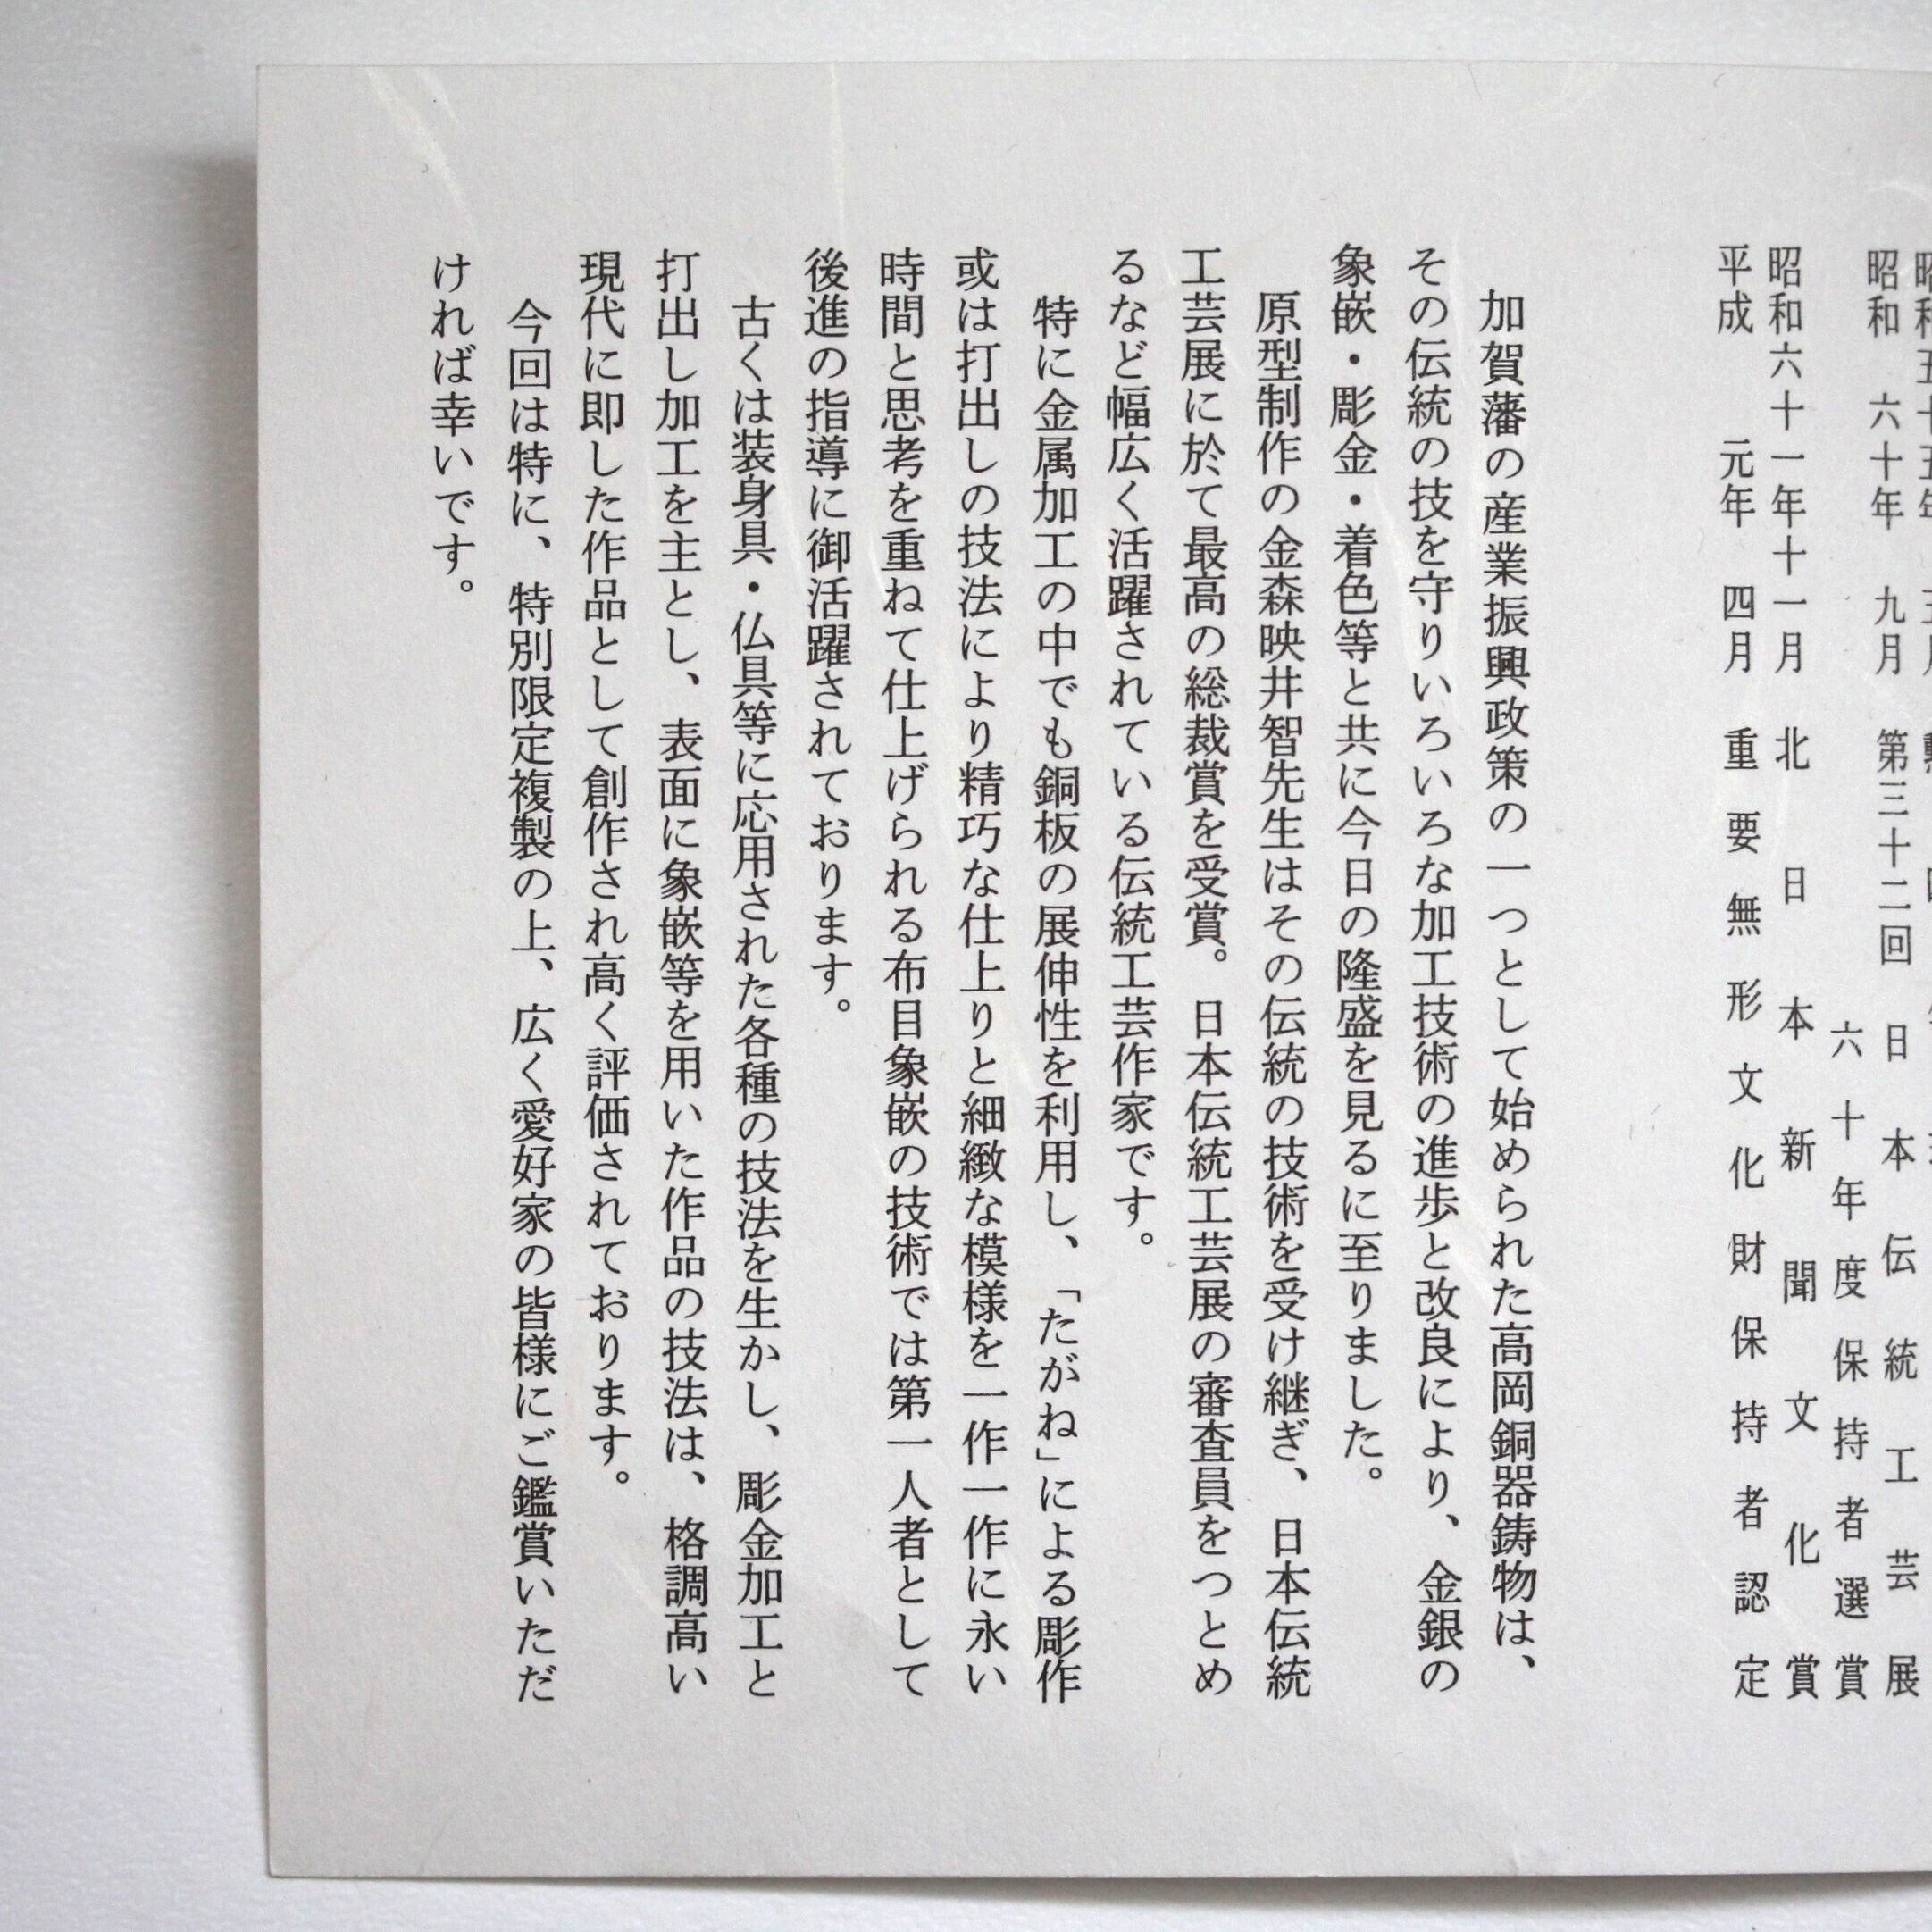 昭和 六十年 九月 第三十二回 日本伝統工芸展
六十年度保持者選賞
昭和六十一年十一月 北日本新聞文化賞
平成 元年 四月 重要無形文化財保持者認定
加賀藩の産業振興政策の一つとして始められた高岡銅器鋳物は、
その伝統の技を守りいろいろな加工技術の進歩と改良により、金銀の
象嵌・彫金・着色等と共に今日の隆盛を見るに至りました。
原型制作の金森映井智先生はその伝統の技術を受け継ぎ、日本伝統
工芸展に於て最高の総裁賞を受賞。日本伝統工芸展の審査員をつとめ
るなど幅広く活躍されている伝統工芸作家です。
特に金属加工の中でも銅板の展伸性を利用し、「たがね」による彫作
或は打出しの技法により精巧な仕上りと細緻な模様を一作一作に永い
時間と思考を重ねて仕上げられる布目象嵌の技術では第一人者として
後進の指導に御活躍されております。
古くは装身具・仏具等に応用された各種の技法を生かし、彫金加工と
打出し加工を主とし、表面に象嵌等を用いた作品の技法は、格調高い
現代に即した作品として創作され高く評価されております。
今回は特に、特別限定複製の上、広く愛好家の皆様にご鑑賞いただ
ければ幸いです。